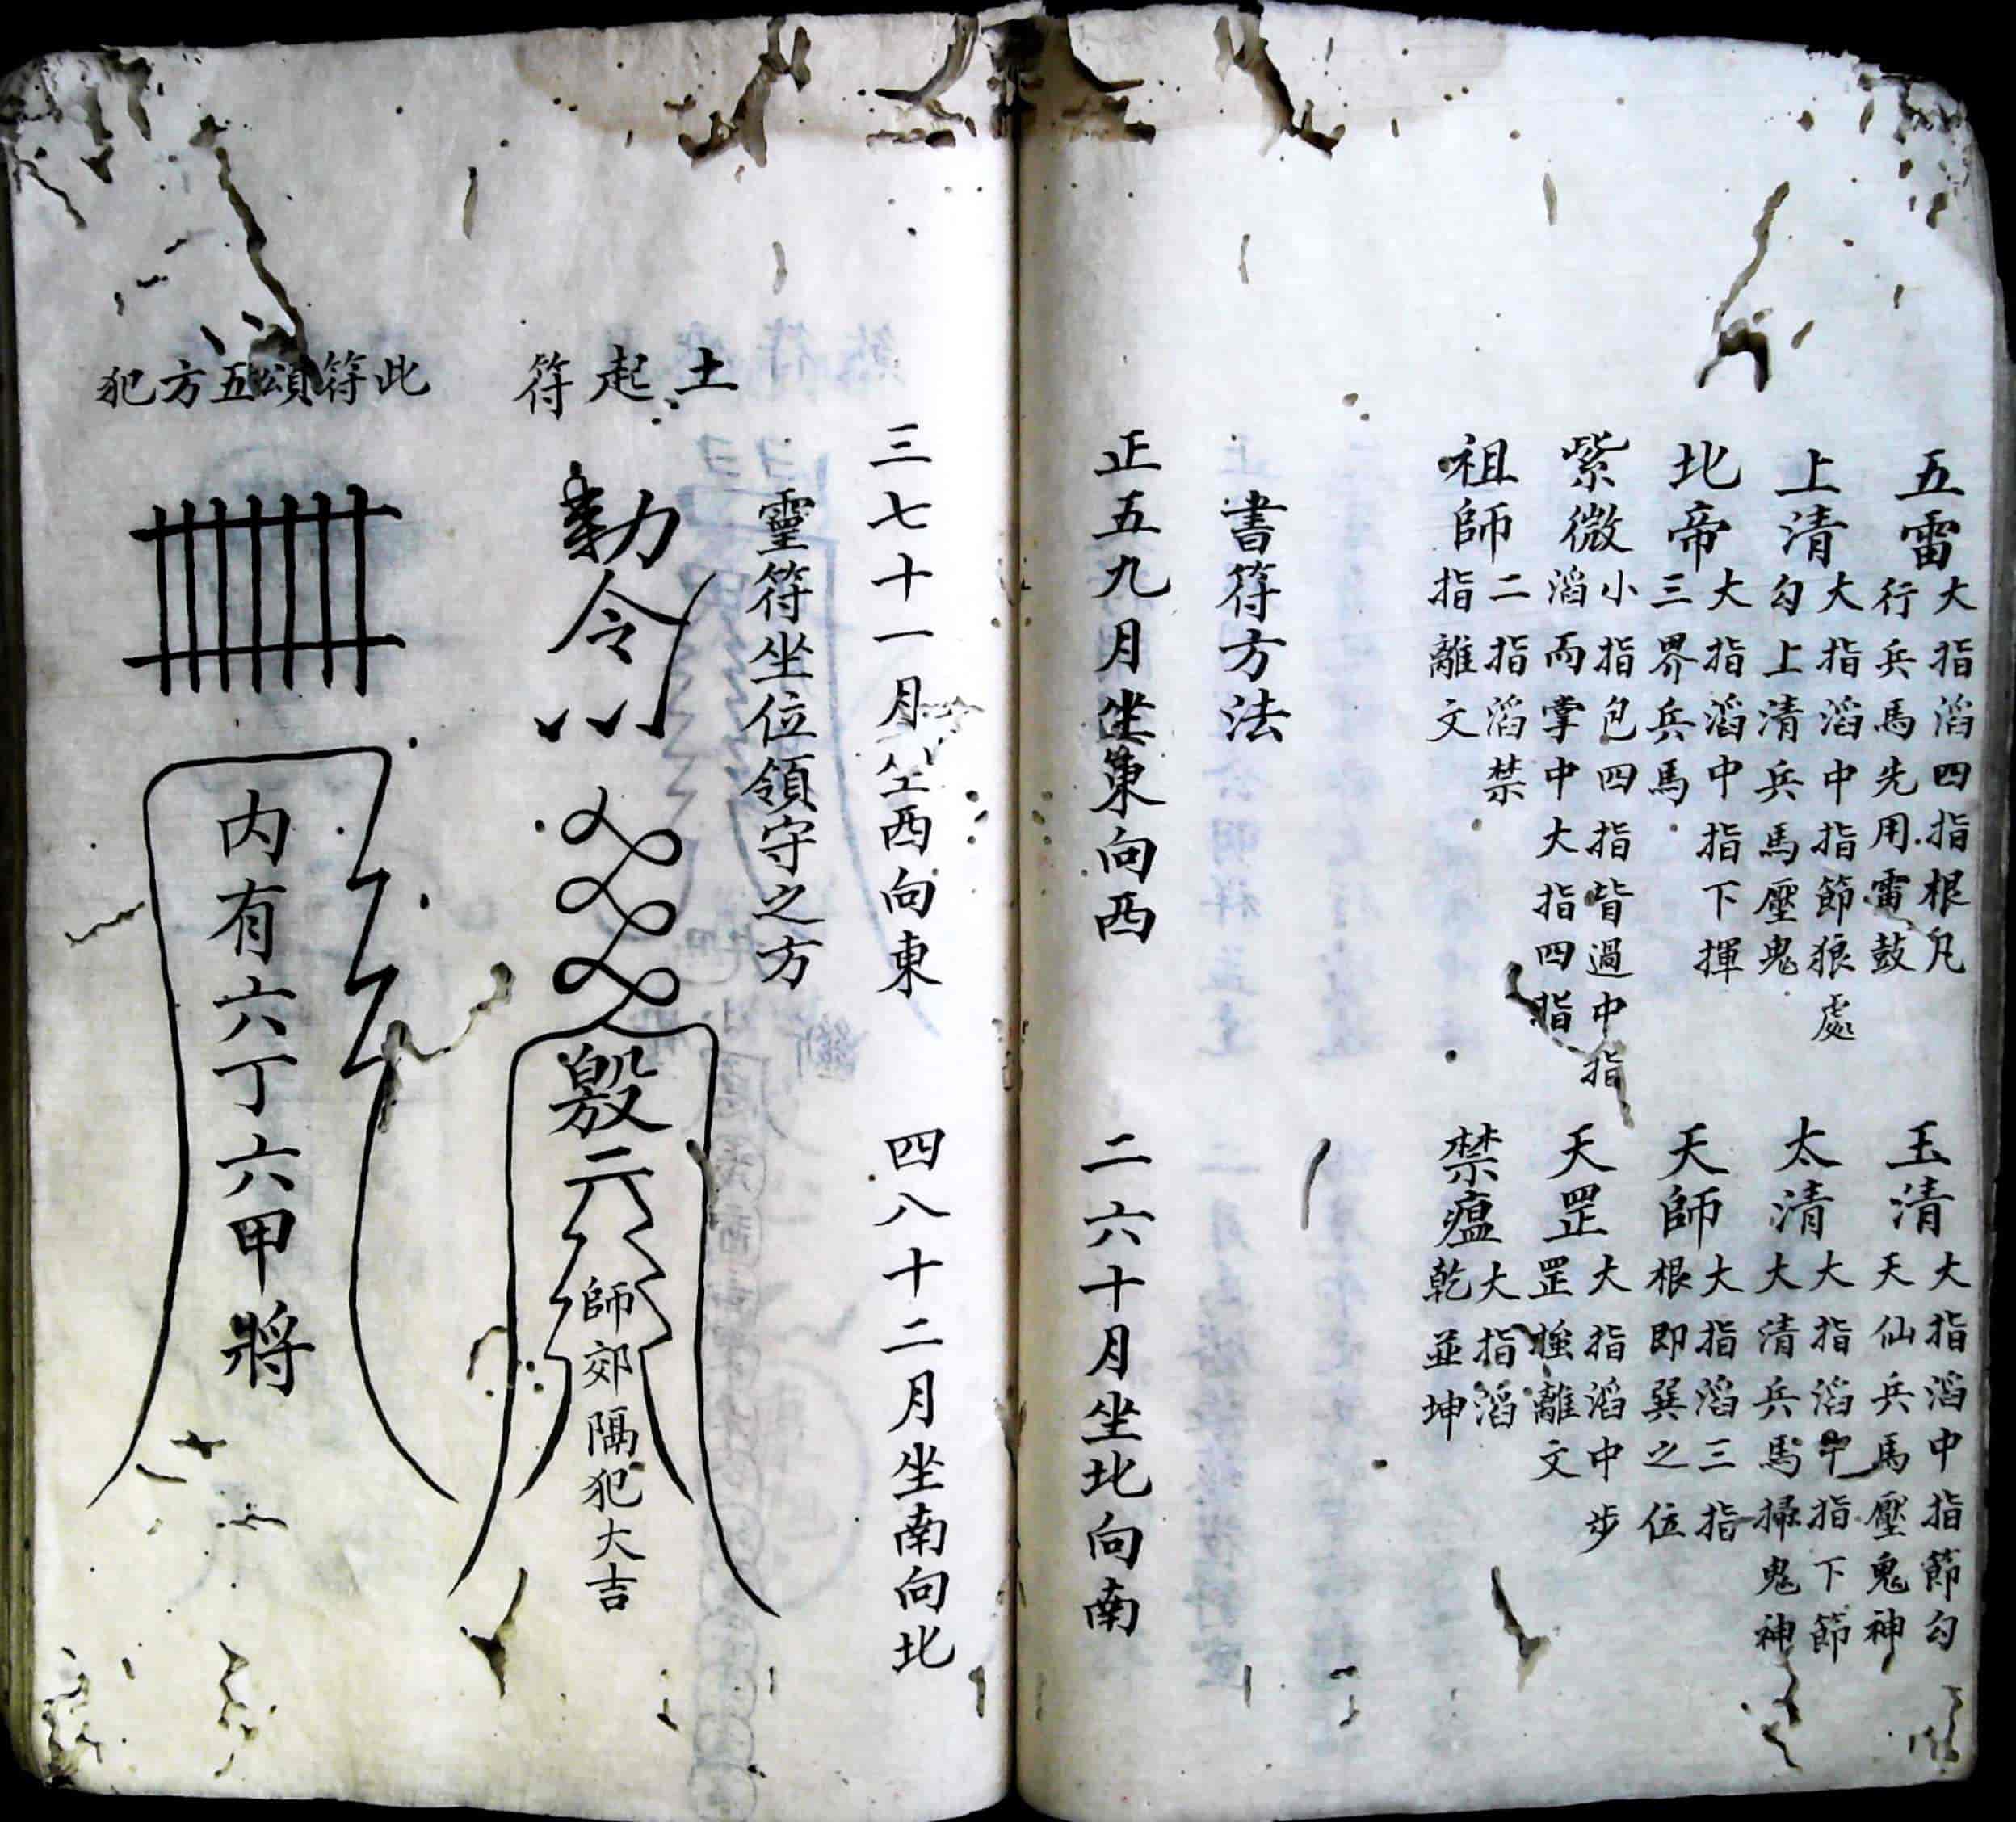 五雷 大指滔四指根凡
行兵馬先用雷鼓
玉清 大指滔中指節勾
天仙兵馬壓鬼神
上清 大指滔中指節狼處
勾上清兵馬壓鬼
太清 大指滔中指下節
大清兵馬掃鬼神
北帝 大指滔中指下揮
三界兵馬
天師 大指滔三指
根即巽之位
紫微 小指包四指皆過中指
滔而掌中大指四指
天罡 大指滔中步
罡離文
祖師 二指滔禁
指離文
禁瘟 大指滔
乾並坤
書符方法
正五九月坐東向西 二六十月坐北向南
三七十一月坐西向東 四八十二月坐南向北
靈符坐位領守之方
土起符
勅令
師郊隔犯大吉
此符頌五方犯
内有六丁六甲將